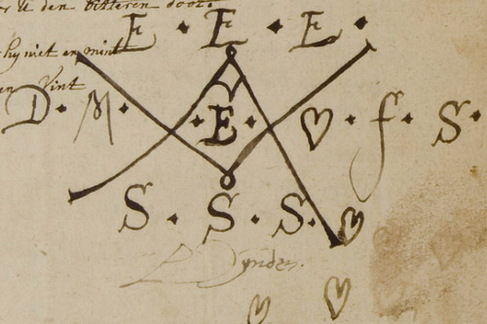 den bitteren doot.
E · E · E ·
hy niet en mint
en vint
D · M · E · ♡ · f · S ·
S · S · S · ♡
♡ ♡